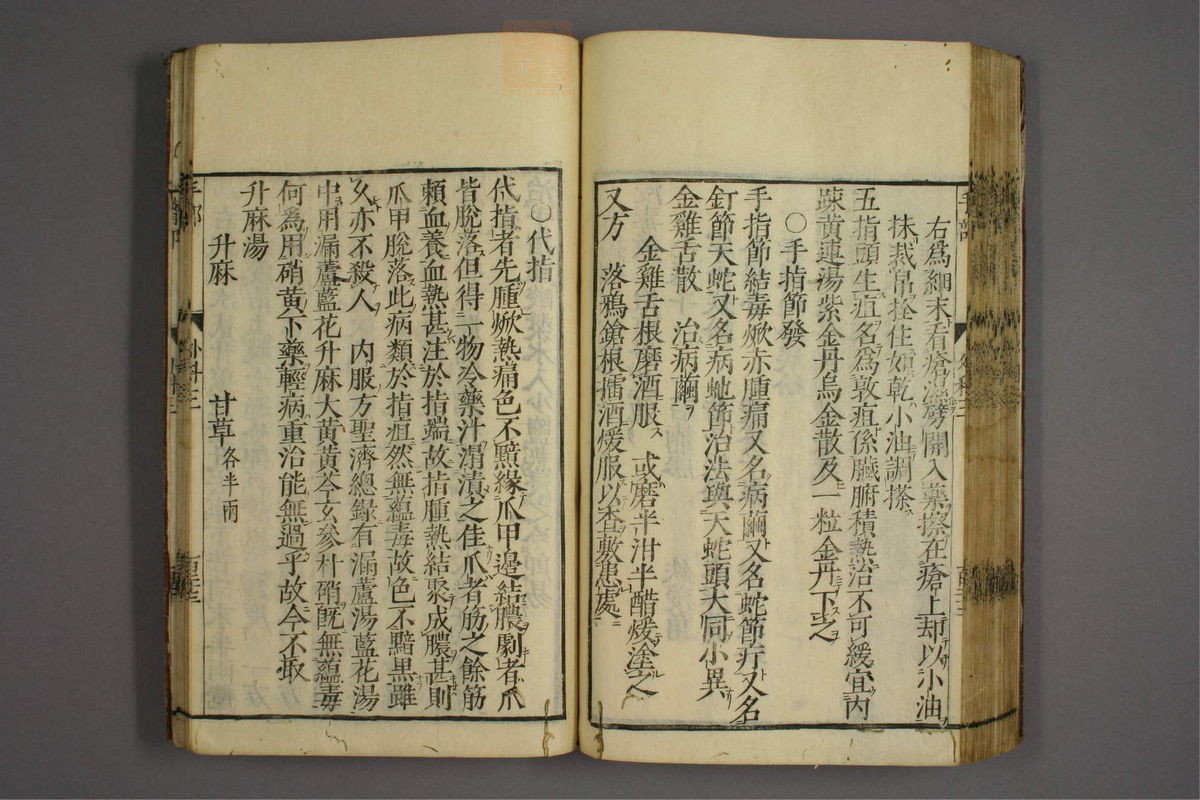 右爲細末看瘡濕劈開入藥擦在瘡上却以小油
抹裁帛拴住如乾小油調搽
五指頭生疽名爲敦疽係臟腑積熱治不可緩宜内
踈黄連湯紫金丹烏金散及一粒金丹下之
〇手指節發
手指節結毒焮赤腫痛又名病繭又名蛇節疔又名
釘節天蛇又名病虵節治法與天蛇頭大同小異
金雞舌散 治病繭
金雞舌根磨酒服 或磨半泔半醋煖塗之
又方 落鴉鎗根擂酒煖服以査敷患處
〇代指
代指者先腫焮熱痛色不黯緣爪甲邊結膿劇者爪
皆脫落但得一物冷藥汁溻漬之佳爪者筋之餘筋
頼血養血熱甚注於指端故指腫熱結聚成膿甚則
爪甲脫落此病類於指疽然無蘊毒故色不黯黒雖
久亦不殺人 内服方聖濟總錄有漏蘆湯藍花湯
中用漏蘆藍花升麻大黄黄芩玄參朴硝旣無蘊毒
何爲用硝黄下藥輕病重治能無過乎故今不取
升麻湯
升麻 甘草各半兩
手部
外科三